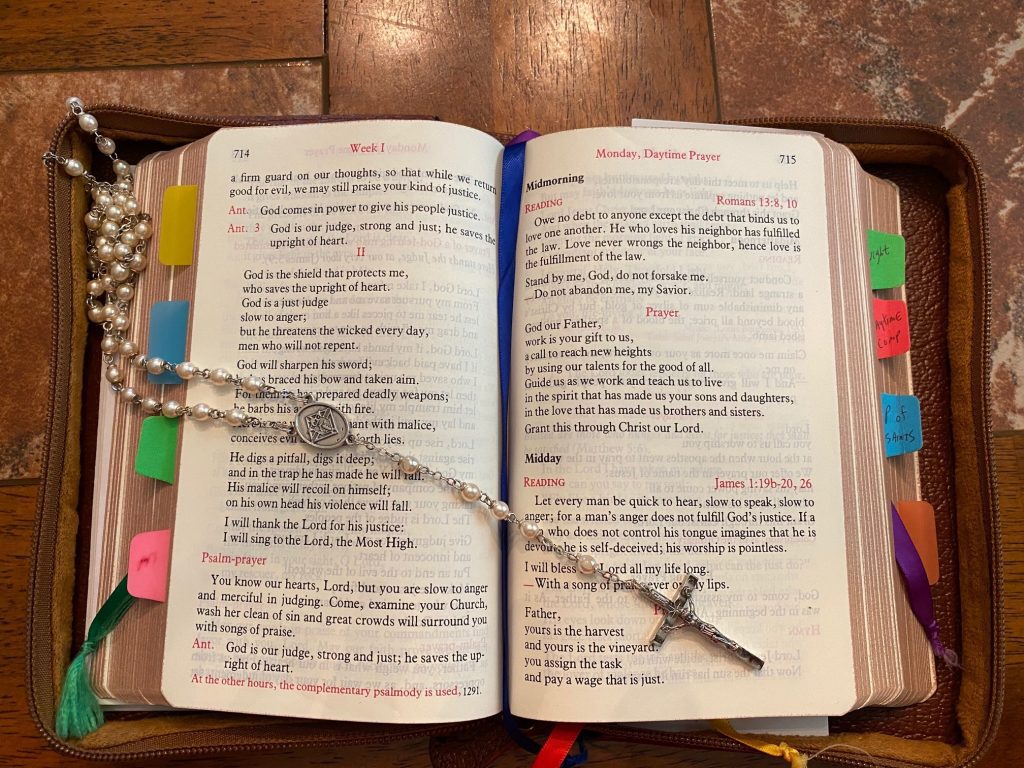 714
Week I
a firm guard on our thoughts, so that while we return
good for evil, we may still praise your kind of justice.
Ant. God comes in power to give his people justice.
Ant. 3 God is our judge, strong and just; he saves the
upright of heart.
II
God is the shield that protects me,
who saves the upright of heart.
God is a just judge
slow to anger;
but he threatens the wicked every day,
men who will not repent.
God will sharpen his sword;
braced his bow and taken aim.
For has prepared deadly weapons;
he barbs his with fire.
with malice,
conceives forth lies.
He digs a pitfall, digs it deep;
and in the trap he has made he will fall.
His malice will recoil on himself;
on his own head his violence will fall.
I will thank the Lord for his justice:
I will sing to the Lord, the Most High.
Psalm-prayer
You know our hearts, Lord, but you are slow to anger
and merciful in judging. Come, examine your Church,
wash her clean of sin and great crowds will surround you
with songs of praise.
Ant. God is our judge, strong and just; he saves the up-
right of heart.
At the other hours, the complementary psalmody is used, 1291.
Monday, Daytime Prayer
715
Midmorning
READING Romans 13:8, 10
Owe no debt to anyone except the debt that binds us to
love one another. He who loves his neighbor has fulfilled
the law. Love never wrongs the neighbor, hence love is
the fulfillment of the law.
Stand by me, God, do not forsake me.
—Do not abandon me, my Savior.
Prayer
God our Father,
work is your gift to us,
a call to reach new heights
by using our talents for the good of all.
Guide us as we work and teach us to live
in the spirit that has made us your sons and daughters,
in the love that has made us brothers and sisters.
Grant this through Christ our Lord.
Midday
READING James 1:19b-20, 26
Let every man be quick to hear, slow to speak, slow to
anger; for a man's anger does not fulfill God's justice. If a
who does not control his tongue imagines that he is
devout, he is self-deceived; his worship is pointless.
I will bless Lord all my life long.
—With a song of praise ever on my lips.
Father,
yours is the harvest
and yours is the vineyard:
you assign the task
and pay a wage that is just.
Comp
P of
SAINTS